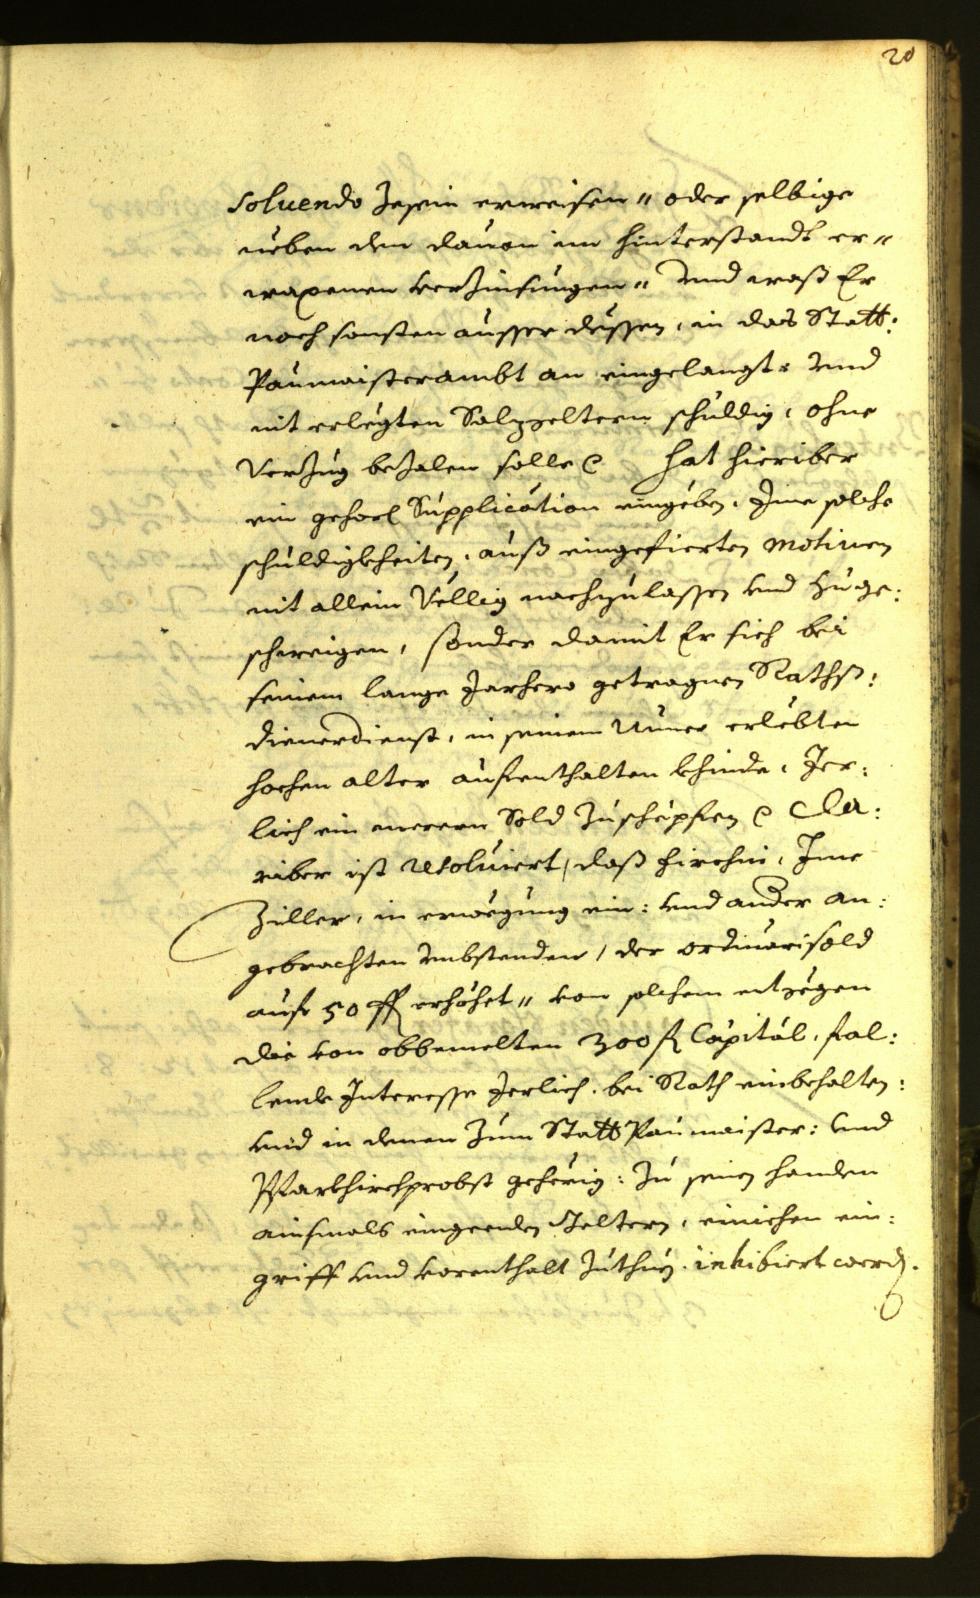 20
soluendo Zesein erweisen" oder selbige
neben den dauon im hinterstandt er"
waxenen verzinsungen" Vnd waß Er
noch sonsten ausser dessen, in das Statt:
Paumaisterambt an eingelangt: Vnd
nit erlegten Salzgeltern schuldig, ohne
Verzug bezalen solle hat hieriber
ein gehors Supplication eingeben. Ime solche
schuldigkheiten, auß eingefierten motiuen
nit allein Völlig nachzulassen vnd zuge:
schweigen, sonder damit Er sich bei
seinem lange Jarhero getragnen Rathß:
dienerdienst, in seinem nuner erlebten
hochen alter aufenthalten khinde, Jer:
lich ein merern Sold zuschepfen Da:
riber ist resoluiert, daß firohin, Ime
Ziller, in erwegung ein: vnd ander an:
gebrachten vmbstenden, der ordinari sold
auf 50 ff erhöhet" von solchem entgegen
die von obbemelten 300 fl Capital, fal:
lende Interesse Jerlich. bei Rath einbehalten:
vnd in denen zum Statt Paumaister: vnd
Pfarkhirchprobst geherig: zu seinen handen
ainsmals eingeenden Geltern, ainichen ein:
griff vnd vorenthalt zuthun. inhibiert werden.